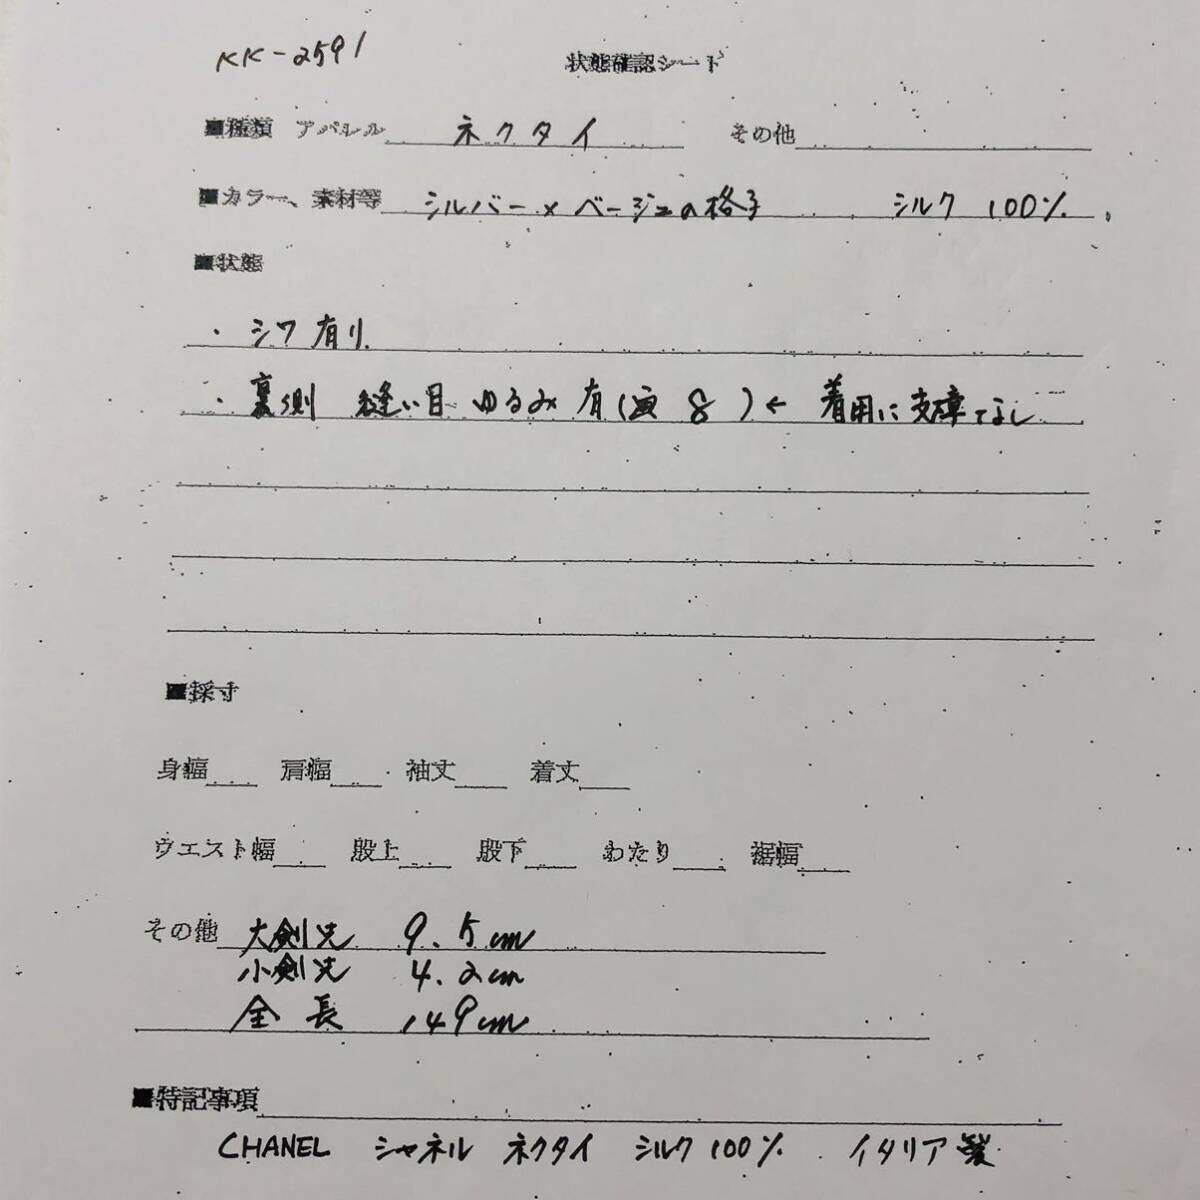 KK-2591
状態確認シート
■種類 アパレル ネクタイ その他
■カラー、素材等 シルバー×ベージュの格子 シルク 100%
■状態
・シワ有り
・裏側 縫い目 ゆるみ 有(画 8 )← 着用に支障なし
■採寸
身幅 肩幅 袖丈 着丈
ウエスト幅 股上 股下 わたり 裾幅
その他 大剣先 9.5cm
小剣先 4.2cm
全長 149cm
■特記事項
CHANEL シャネル ネクタイ シルク100% イタリア製